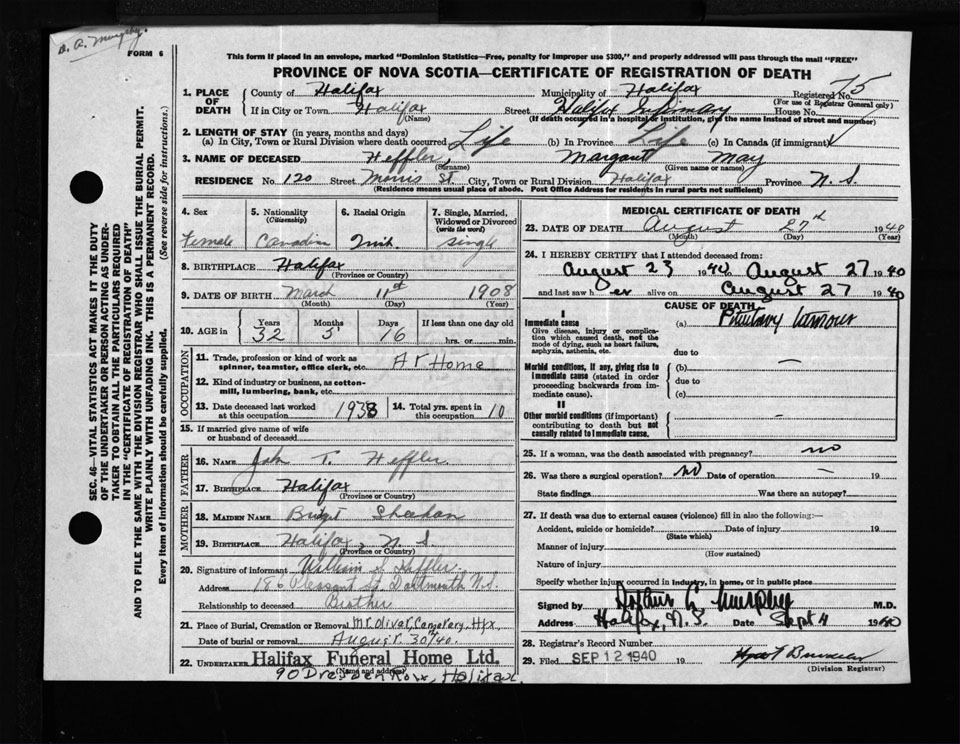 FORM 6
This form if placed in an envelope, marked "Dominion Statistics—Free, penalty for improper use $300," and properly addressed will pass through the mail "FREE"
PROVINCE OF NOVA SCOTIA—CERTIFICATE OF REGISTRATION OF DEATH
1. PLACE OF DEATH
County of Halifax Municipality of Halifax Registered No. 75
(For use of Registrar General only)
If in City or Town Halifax Street Halifax Infirmary House No.
(Name) (If death occurred in a hospital or institution, give the name instead of street and number)
2. LENGTH OF STAY (in years, months and days)
(a) In City, Town or Rural Division where death occurred Life (b) In Province Life (c) In Canada (if immigrant)
3. NAME OF DECEASED Heffler, Margaret May
(Surname) (Given name or names)
RESIDENCE No. 120 Street Morris St. City, Town or Rural Division Halifax Province N. S.
(Residence means usual place of abode. Post Office Address for residents in rural parts not sufficient)
4. Sex Female
5. Nationality (Citizenship) Canadian
6. Racial Origin Irish
7. Single, Married, Widowed or Divorced (write the word) Single
8. BIRTHPLACE Halifax
(Province or Country)
9. DATE OF BIRTH March 11 1908
(Month) (Day) (Year)
10. AGE in Years 32 Months 5 Days 16 If less than one day old hrs. or min.
OCCUPATION
11. Trade, profession or kind of work as spinner, teamster, office clerk, etc. At Home
12. Kind of industry or business, as cotton-mill, lumbering, bank, etc.
13. Date deceased last worked at this occupation 1938
14. Total yrs. spent in this occupation 10
15. If married give name of wife or husband of deceased
FATHER
16. NAME John T. Heffler
17. BIRTHPLACE Halifax
(Province or Country)
MOTHER
18. MAIDEN NAME Bridget Sheehan
19. BIRTHPLACE Halifax, N. S.
(Province or Country)
20. Signature of informant William J. Heffler
Address 186 Pleasant St. Dartmouth N.S.
Relationship to deceased Brother
21. Place of Burial, Cremation or Removal Mt. Olivet Cemetery, Hfx,
Date of burial or removal August 30th/40.
22. UNDERTAKER Halifax Funeral Home Ltd.
(Name and address)
90 Dresden Row, Halifax.
MEDICAL CERTIFICATE OF DEATH
23. DATE OF DEATH August 27th 1940
(Month) (Day) (Year)
24. I HEREBY CERTIFY that I attended deceased from:
August 23 1940 to August 27 1940
and last saw her alive on August 27 1940
CAUSE OF DEATH
I
Immediate cause (a) Pituitary
Give disease, injury or complication which caused death, not the mode of dying, such as heart failure, asphyxia, asthenia, etc.
due to
Morbid conditions, if any, giving rise to immediate cause (stated in order proceeding backwards from immediate cause). (b) —
due to
(c)
II
Other morbid conditions (if important) contributing to death but not causally related to immediate cause. —
25. If a woman, was the death associated with pregnancy? no
26. Was there a surgical operation? No Date of operation — 19
State findings Was there an autopsy?
27. If death was due to external causes (violence) fill in also the following:—
Accident, suicide or homicide? Date of injury 19
(State which)
Manner of injury
(How sustained)
Nature of injury
Specify whether injury occurred in industry, in home, or in public place
Signed by Arthur Murphy M.D.
Address Halifax, N.S. Date Sept 4 1940
28. Registrar's Record Number
29. Filed SEP 12 1940 19
(Division Registrar)
SEC. 46—VITAL STATISTICS ACT MAKES IT THE DUTY
OF THE UNDERTAKER OR PERSON ACTING AS UNDER-
TAKER TO OBTAIN ALL THE PARTICULARS REQUIRED
IN THE "CERTIFICATE OF REGISTRATION OF DEATH"
AND TO FILE THE SAME WITH THE DIVISION REGISTRAR WHO SHALL ISSUE THE BURIAL PERMIT.
WRITE PLAINLY WITH UNFADING INK. THIS IS A PERMANENT RECORD.
Every item of information should be carefully supplied. (See reverse side for instructions.)